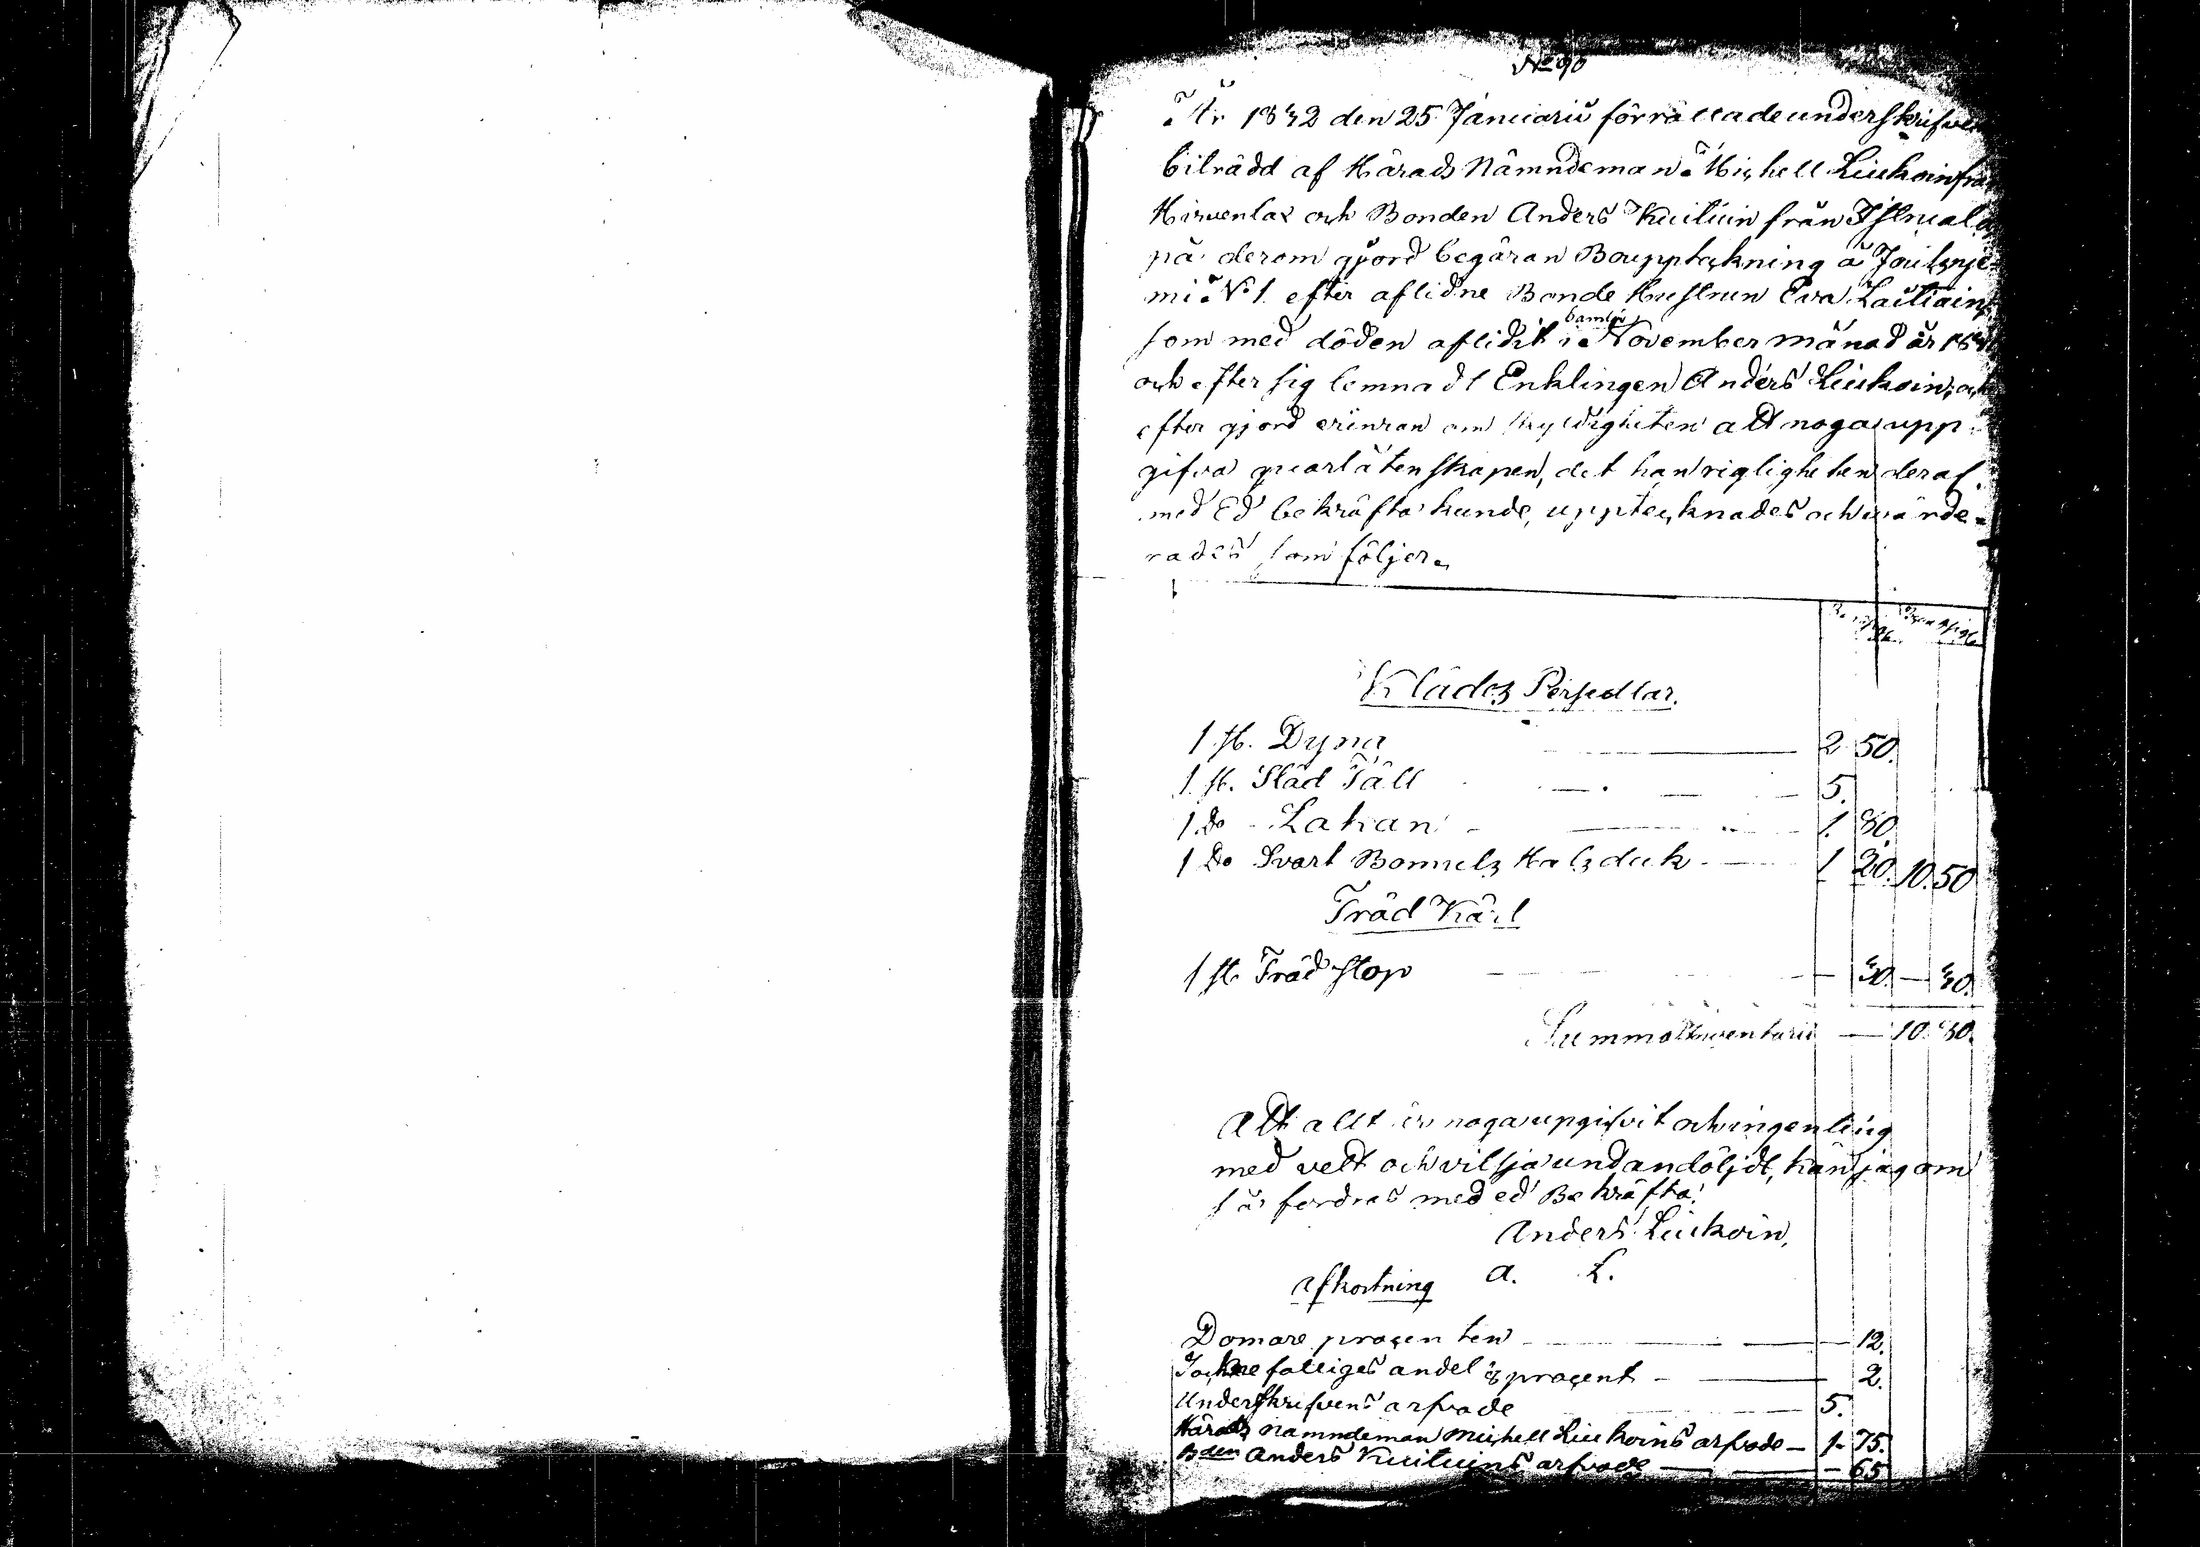 No 90
År 1842 den 25 Januarii förrättade underskrifven
biträdd af Härads Nämndeman Michell Liukoin från
Hirvenlax och Bonden Anders Kuituin från
på derom gjord begäran Bouppteckning å
mi No 1. efter aflidne Bonde Hustrun Eva Laitiain,
som med döden aflidit i November månad år
och efter sig lemnadt Enklingen Anders Liukoin, och
efter gjord erinran om skyldigheten att noga upp-
gifva qvarlåtenskapen, det han rigligheten deraf
med Ed bekräfta kunde, upptecknades och värde-
rades som följer.
Klädes Persedlar.
1 st. Dyna 2 50.
1 st. Fäll 5.
1 Do Lakan 1. 80
1 Do Svart Bomuls Halsduk 1 20. 10. 50
Träd Kärl
1 st Träd stop — 30. — 30.
Summa Inventarii — 10. 80.
Att allt är noga upgifvit och ingenting
med vett och vilja undandöljdt, kan jag om
så fordras med ed Bekräfta.
Anders Liukoin,
A. L.
Afkortning
Domare procenten — 12.
fattiges andel procent — 2.
Underskrifvens arfvode 5.
Härads Nämndeman Michell Liukoins arfvode — 1 - 75.
Bden Anders Kuituins arfvode — 65